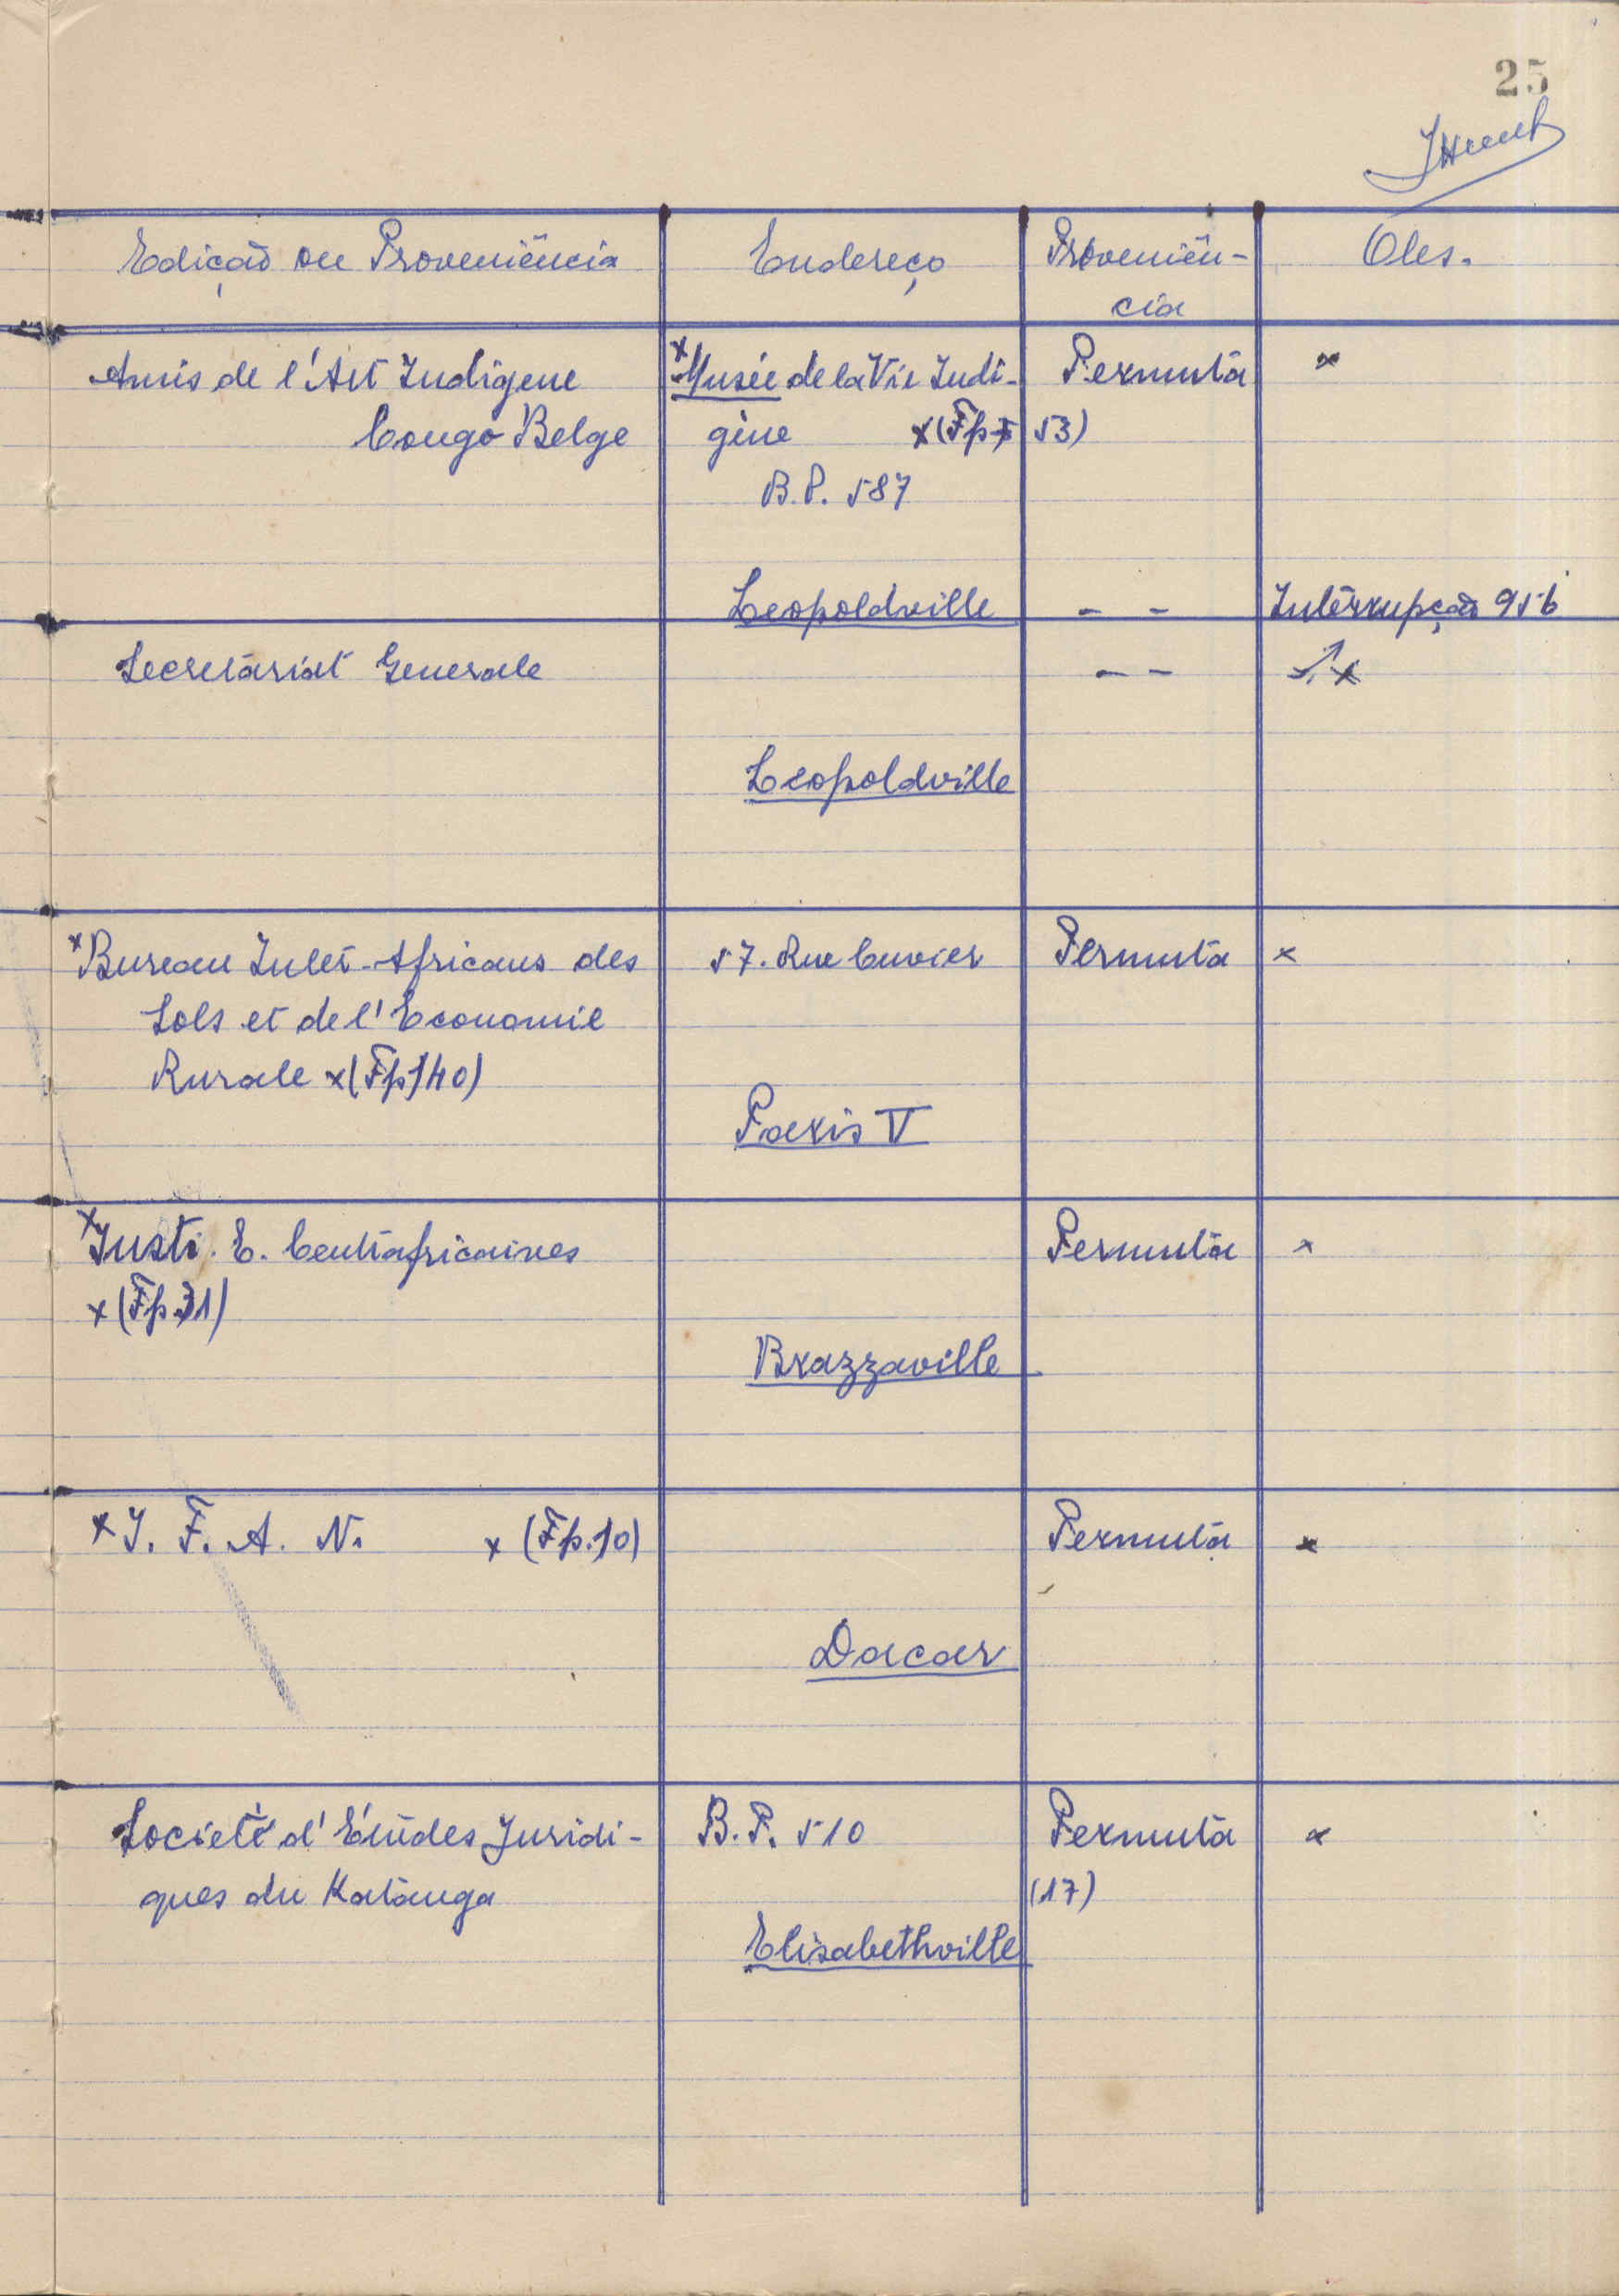 25
Edição ou Proveniência Endereço Proveniên- Obs.
cia
Amis de l'Art Indigene x Musée de la Vie Indi- Permuta x
Congo Belge gène x (Fp. 53)
B.P. 587
Leopoldville - - Interrupção 956
Secretariat Generale - - x
Leopoldville
x Bureau Inter-Africans des 57. Rue Cuvier Permuta x
Sols et de l'Economie
Rurale x (Fp. 140)
Paris V
x Insti. E. Centrafricaines Permuta x
x (Fp. 31)
Brazzaville
x I. F. A. N. x (Fp. 10) Permuta x
Dacar
Societè d'Études Juridi- B.P. 510 Permuta x
ques du Katanga (17)
Elisabethville